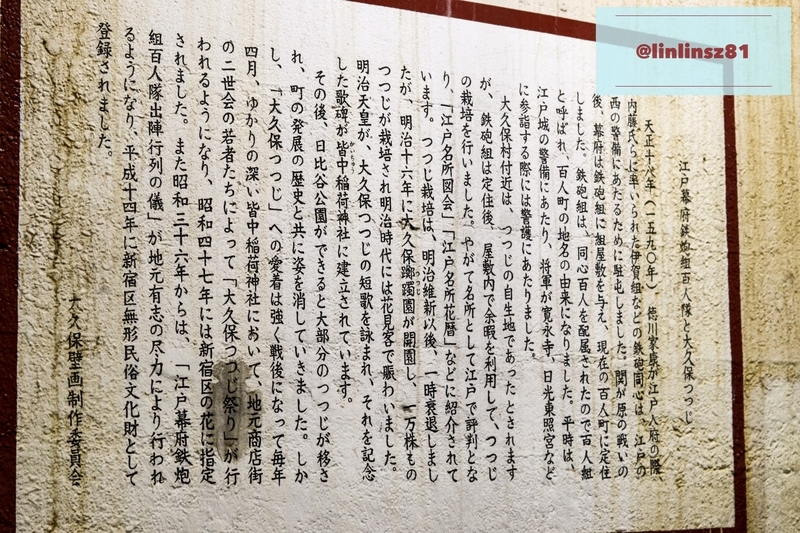 @linlinsz81
江戸幕府鉄炮組百人隊と大久保つつじ
天正十八年（一五九〇年）、徳川家康が江戸入府の際、
内藤氏らに率いられた伊賀組などの鉄砲同心は、江戸の
西の警備にあたるために駐屯しました。関が原の戦いの
後、幕府は鉄砲組に組屋敷を与え、現在の百人町に定住
しました。鉄砲組は、同心百人を配属されたので百人組
と呼ばれ、百人町の地名の由来になりました。平時は、
江戸城の警備にあたり、将軍が寛永寺、日光東照宮など
に参詣する際には警護にあたりました。
大久保村付近は、つつじの自生地であったとされます
が、鉄砲組は定住後、屋敷内で余暇を利用して、つつじ
の栽培を行いました。やがて名所として江戸で評判とな
り、「江戸名所図会」「江戸名所花暦」などに紹介されて
います。つつじ栽培は、明治維新以後、一時衰退しまし
たが、明治十六年に大久保躑躅園が開園し、一万株もの
つつじが栽培され明治時代には花見客で賑わいました。
明治天皇が、大久保つつじの短歌を詠まれ、それを記念
した歌碑が皆中稲荷神社に建立されています。
その後、日比谷公園ができると大部分のつつじが移さ
れ、町の発展の歴史と共に姿を消していきました。しか
し、「大久保つつじ」への愛着は強く戦後になって毎年
四月、ゆかりの深い皆中稲荷神社において、地元商店街
の二世会の若者たちによって「大久保つつじ祭り」が行
われるようになり、昭和四十七年には新宿区の花に指定
されました。また昭和三十六年からは、「江戸幕府鉄炮
組百人隊出陣行列の儀」が地元有志の尽力により行われ
るようになり、平成十四年に新宿区無形民俗文化財として
登録されました。
大久保壁画制作委員会